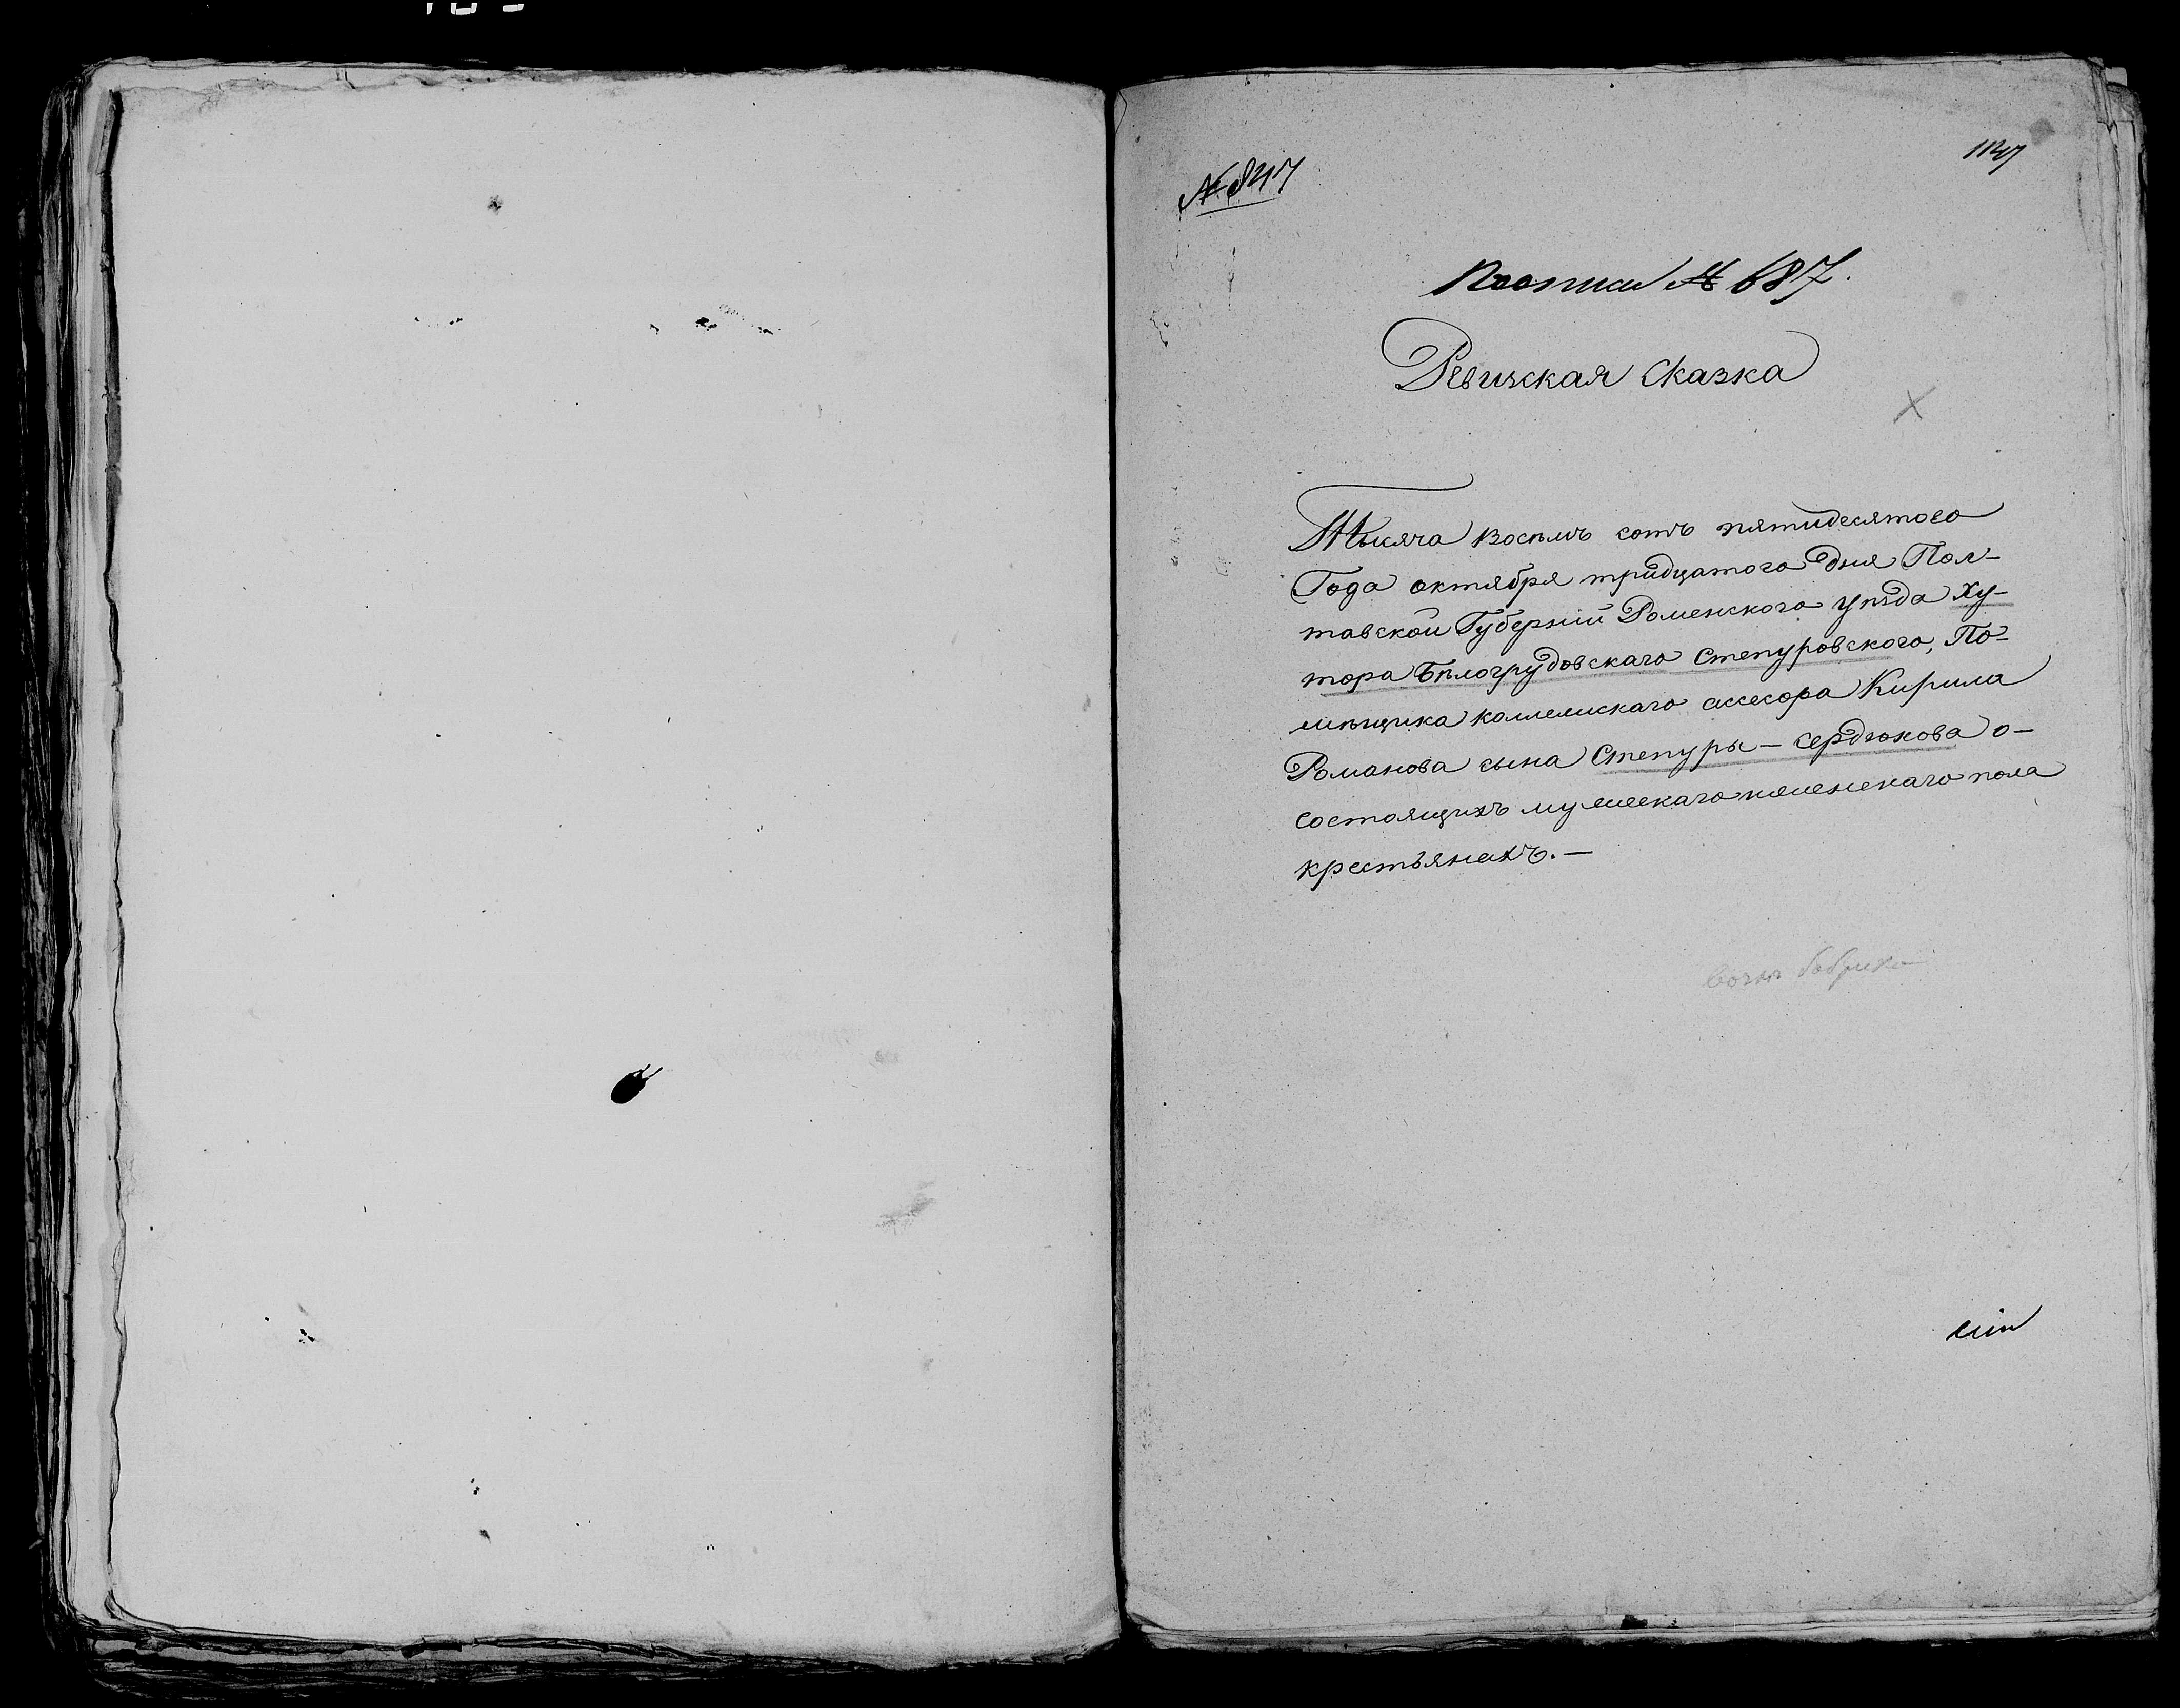 № 847
По описи № 687.
Ревизская Сказка
Тысяча восемь сотъ пятидесятого
Года октября тридцатого дня Пол-
тавской Губерніи Роменского уѣзда Ху-
тора Бѣлогрудовскаго Степуровского, По-
мѣщика коллежскаго ассесора Кирила
Романова сына Степуры - Сердюкова о-
состоящихъ мужескаго и женскаго пола
крестьянахъ. —